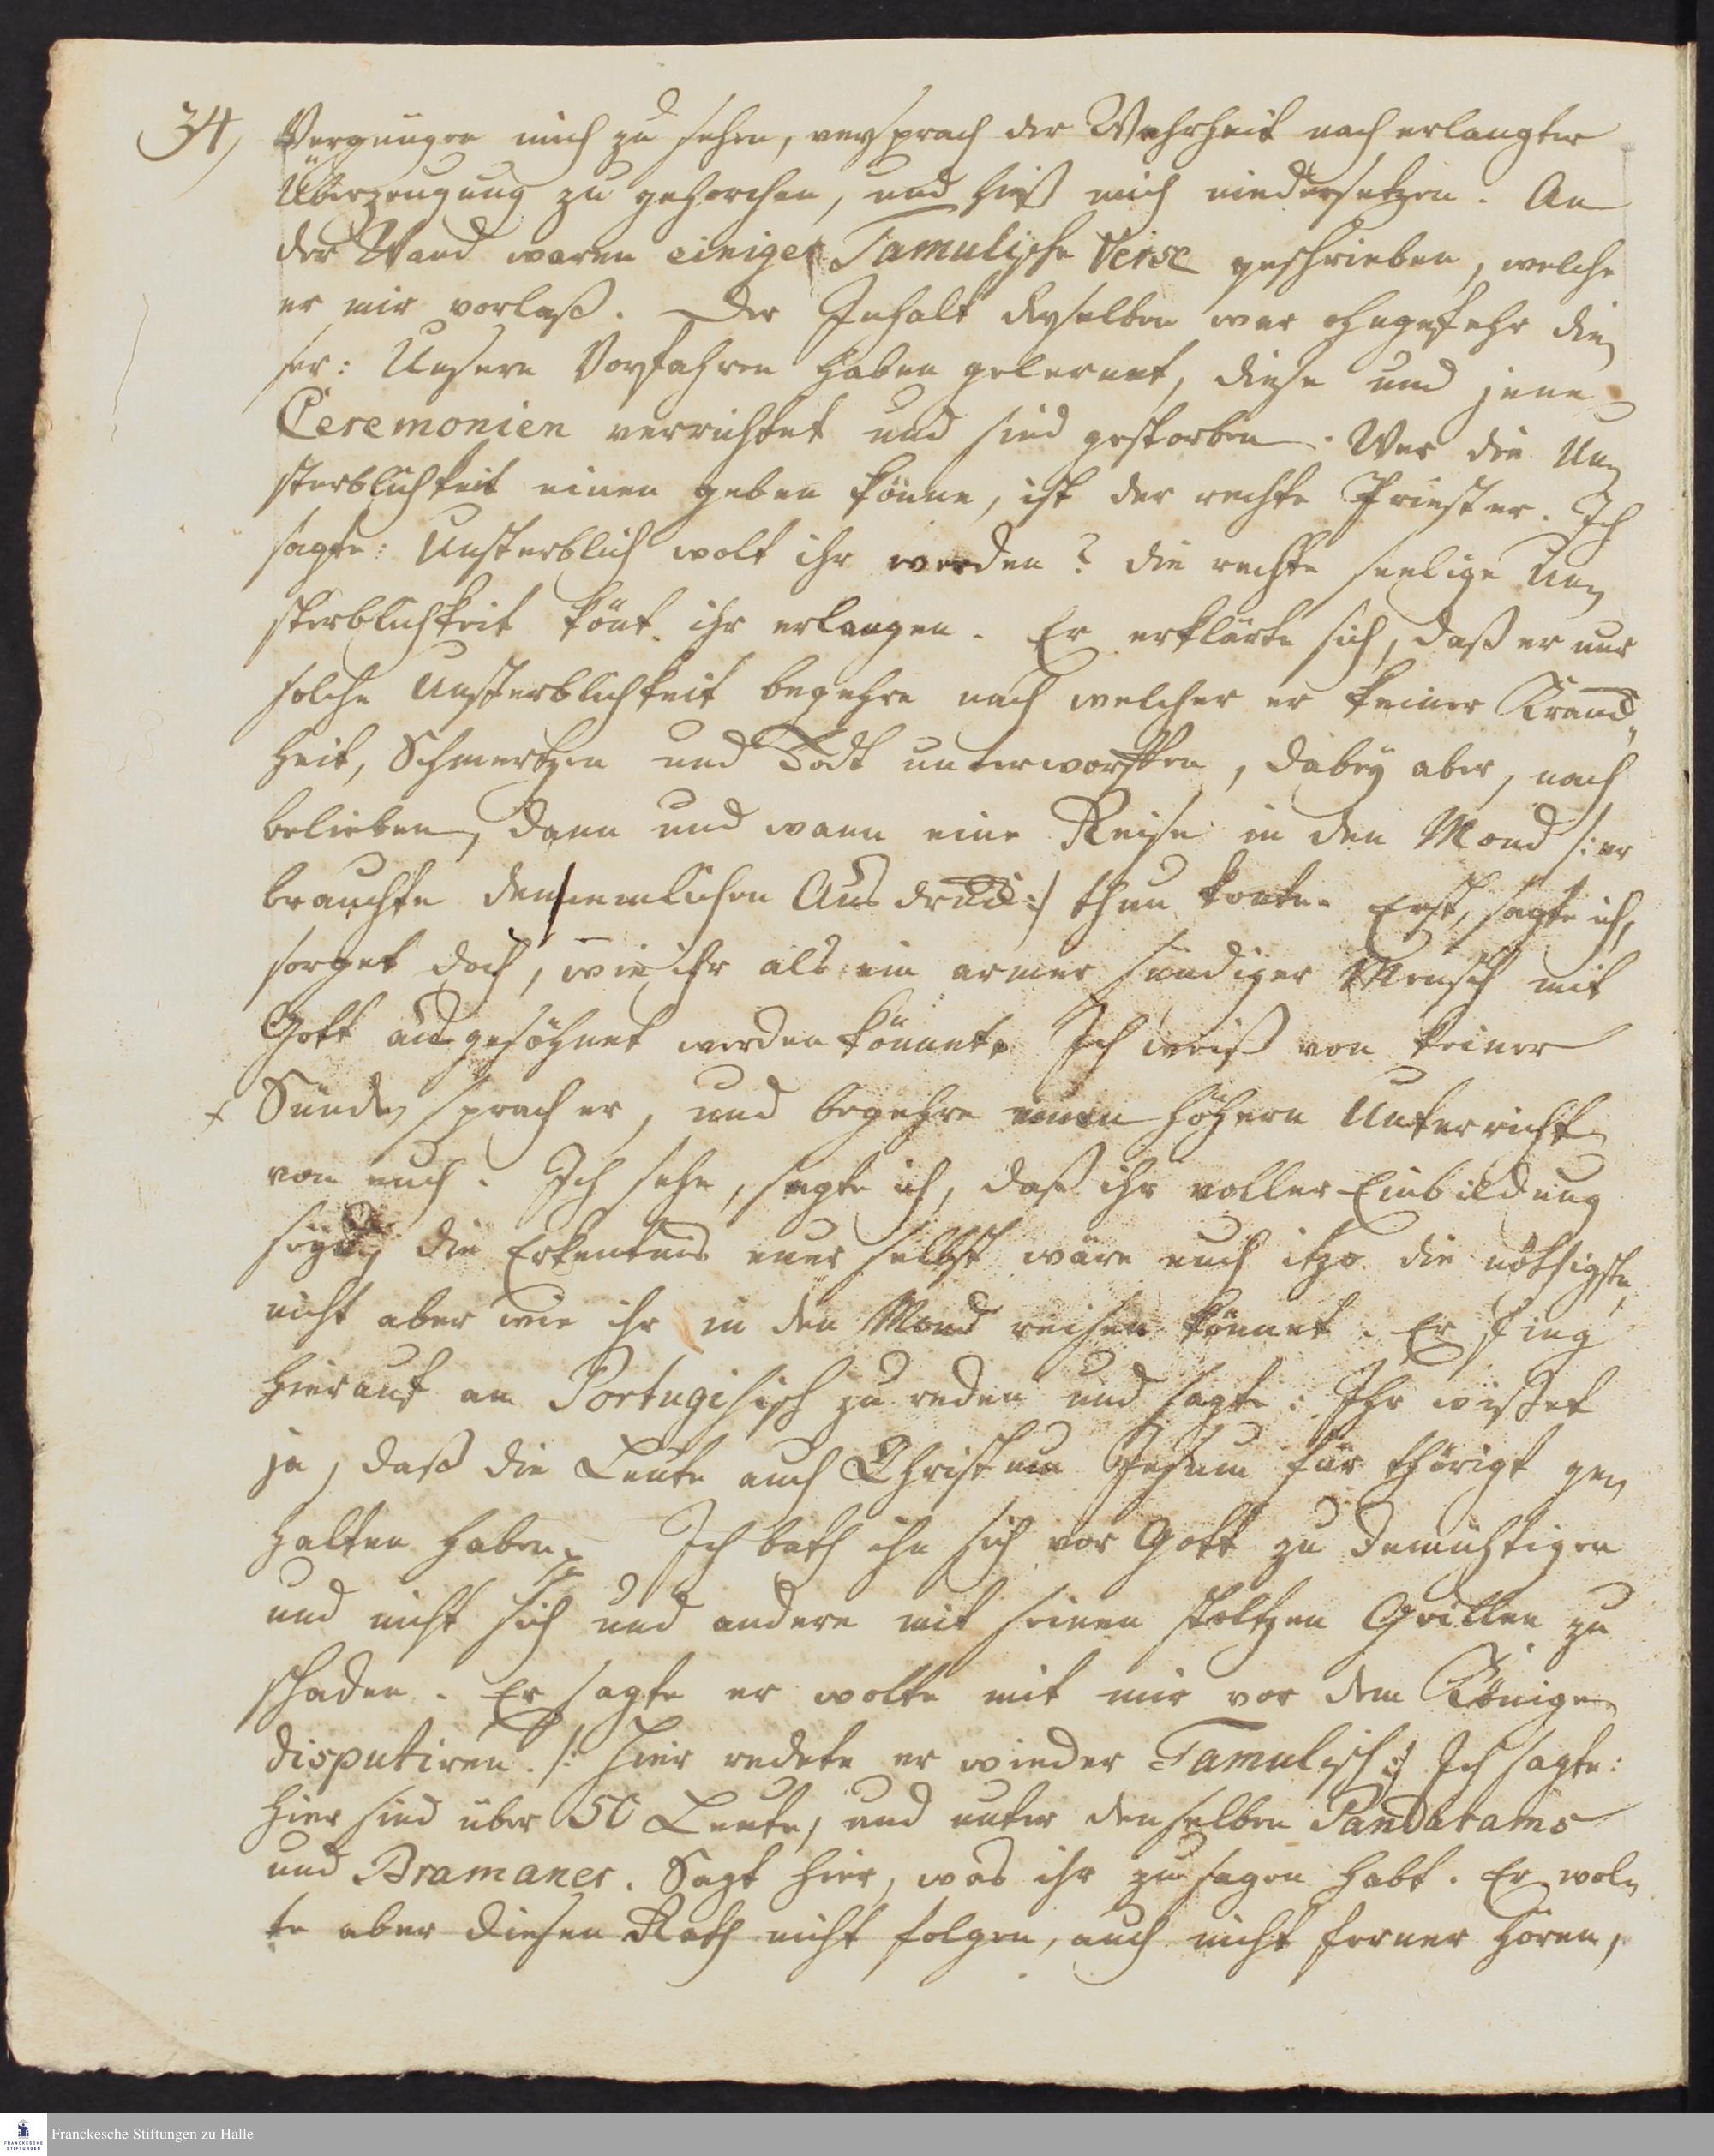 34,
Vergnügen mich zu sehen, versprach der Wahrheit nach erlangter
Überzeugung zu gehorchen, und hieß mich niedersetzen. An
der Wand waren einige Tamulische Verse geschrieben, welche
er mir vorlaß. Der Inhalt derselben war ohngefehr die-
ser: Unsere Vorfahren haben gelernet, diese und jene
Ceremonien verrichtet und sind gestorben. Wer die Un-
sterblichkeit einen geben könne, ist der rechte Priester. Ich
sagte: Unsterblich wolt ihr werden? die rechte seelige Un-
sterblichkeit könt ihr erlangen. Er erklärte sich, daß er nur
solche Unsterblichkeit begehre nach welcher er keiner Kranck-
heit, Schmertzen und Todt unterworffen, dabey aber, nach
belieben, dann und wann eine Reise in den Mond /: er
brauchte den nemlichen Ausdruck :/ thun konte. Erst, sagte ich,
sorget doch, wie ihr als ein armer sündiger Mensch mit
Gott ausgesöhnet werden könnet. Ich weiß von keiner
+ Sünde, sprach er, und begehre einen höhern Unterricht
von euch. Ich sehe, sagte ich, daß ihr voller Einbildung
seyd; die Erkentnis euer selbst wäre euch itzo die nöthigste,
nicht aber wie ihr in den Mond reisen könnet. Er fing
hierauf an Portugisisch zu reden und sagte: Ihr wisset
ja, daß die Leute auch Christum Jesum für thörigt ge-
halten haben. Ich bath ihn sich vor Gott zu demüthigen
und nicht sich und andere mit seinen stoltzen Grillen zu
schaden. Er sagte er wolte mit mir vor dem Könige
disputiren. /: Hier redete er wieder Tamulisch :/ Ich sagte:
Hier sind über 50 Leute, und unter denselben Pandarams
und Bramaner. Sagt hier, was ihr zu sagen habt. Er wol-
te aber diesen Rath nicht folgen, auch nicht ferner hören,
Franckesche Stiftungen zu Halle
FRANCKESCHE
STIFTUNGEN